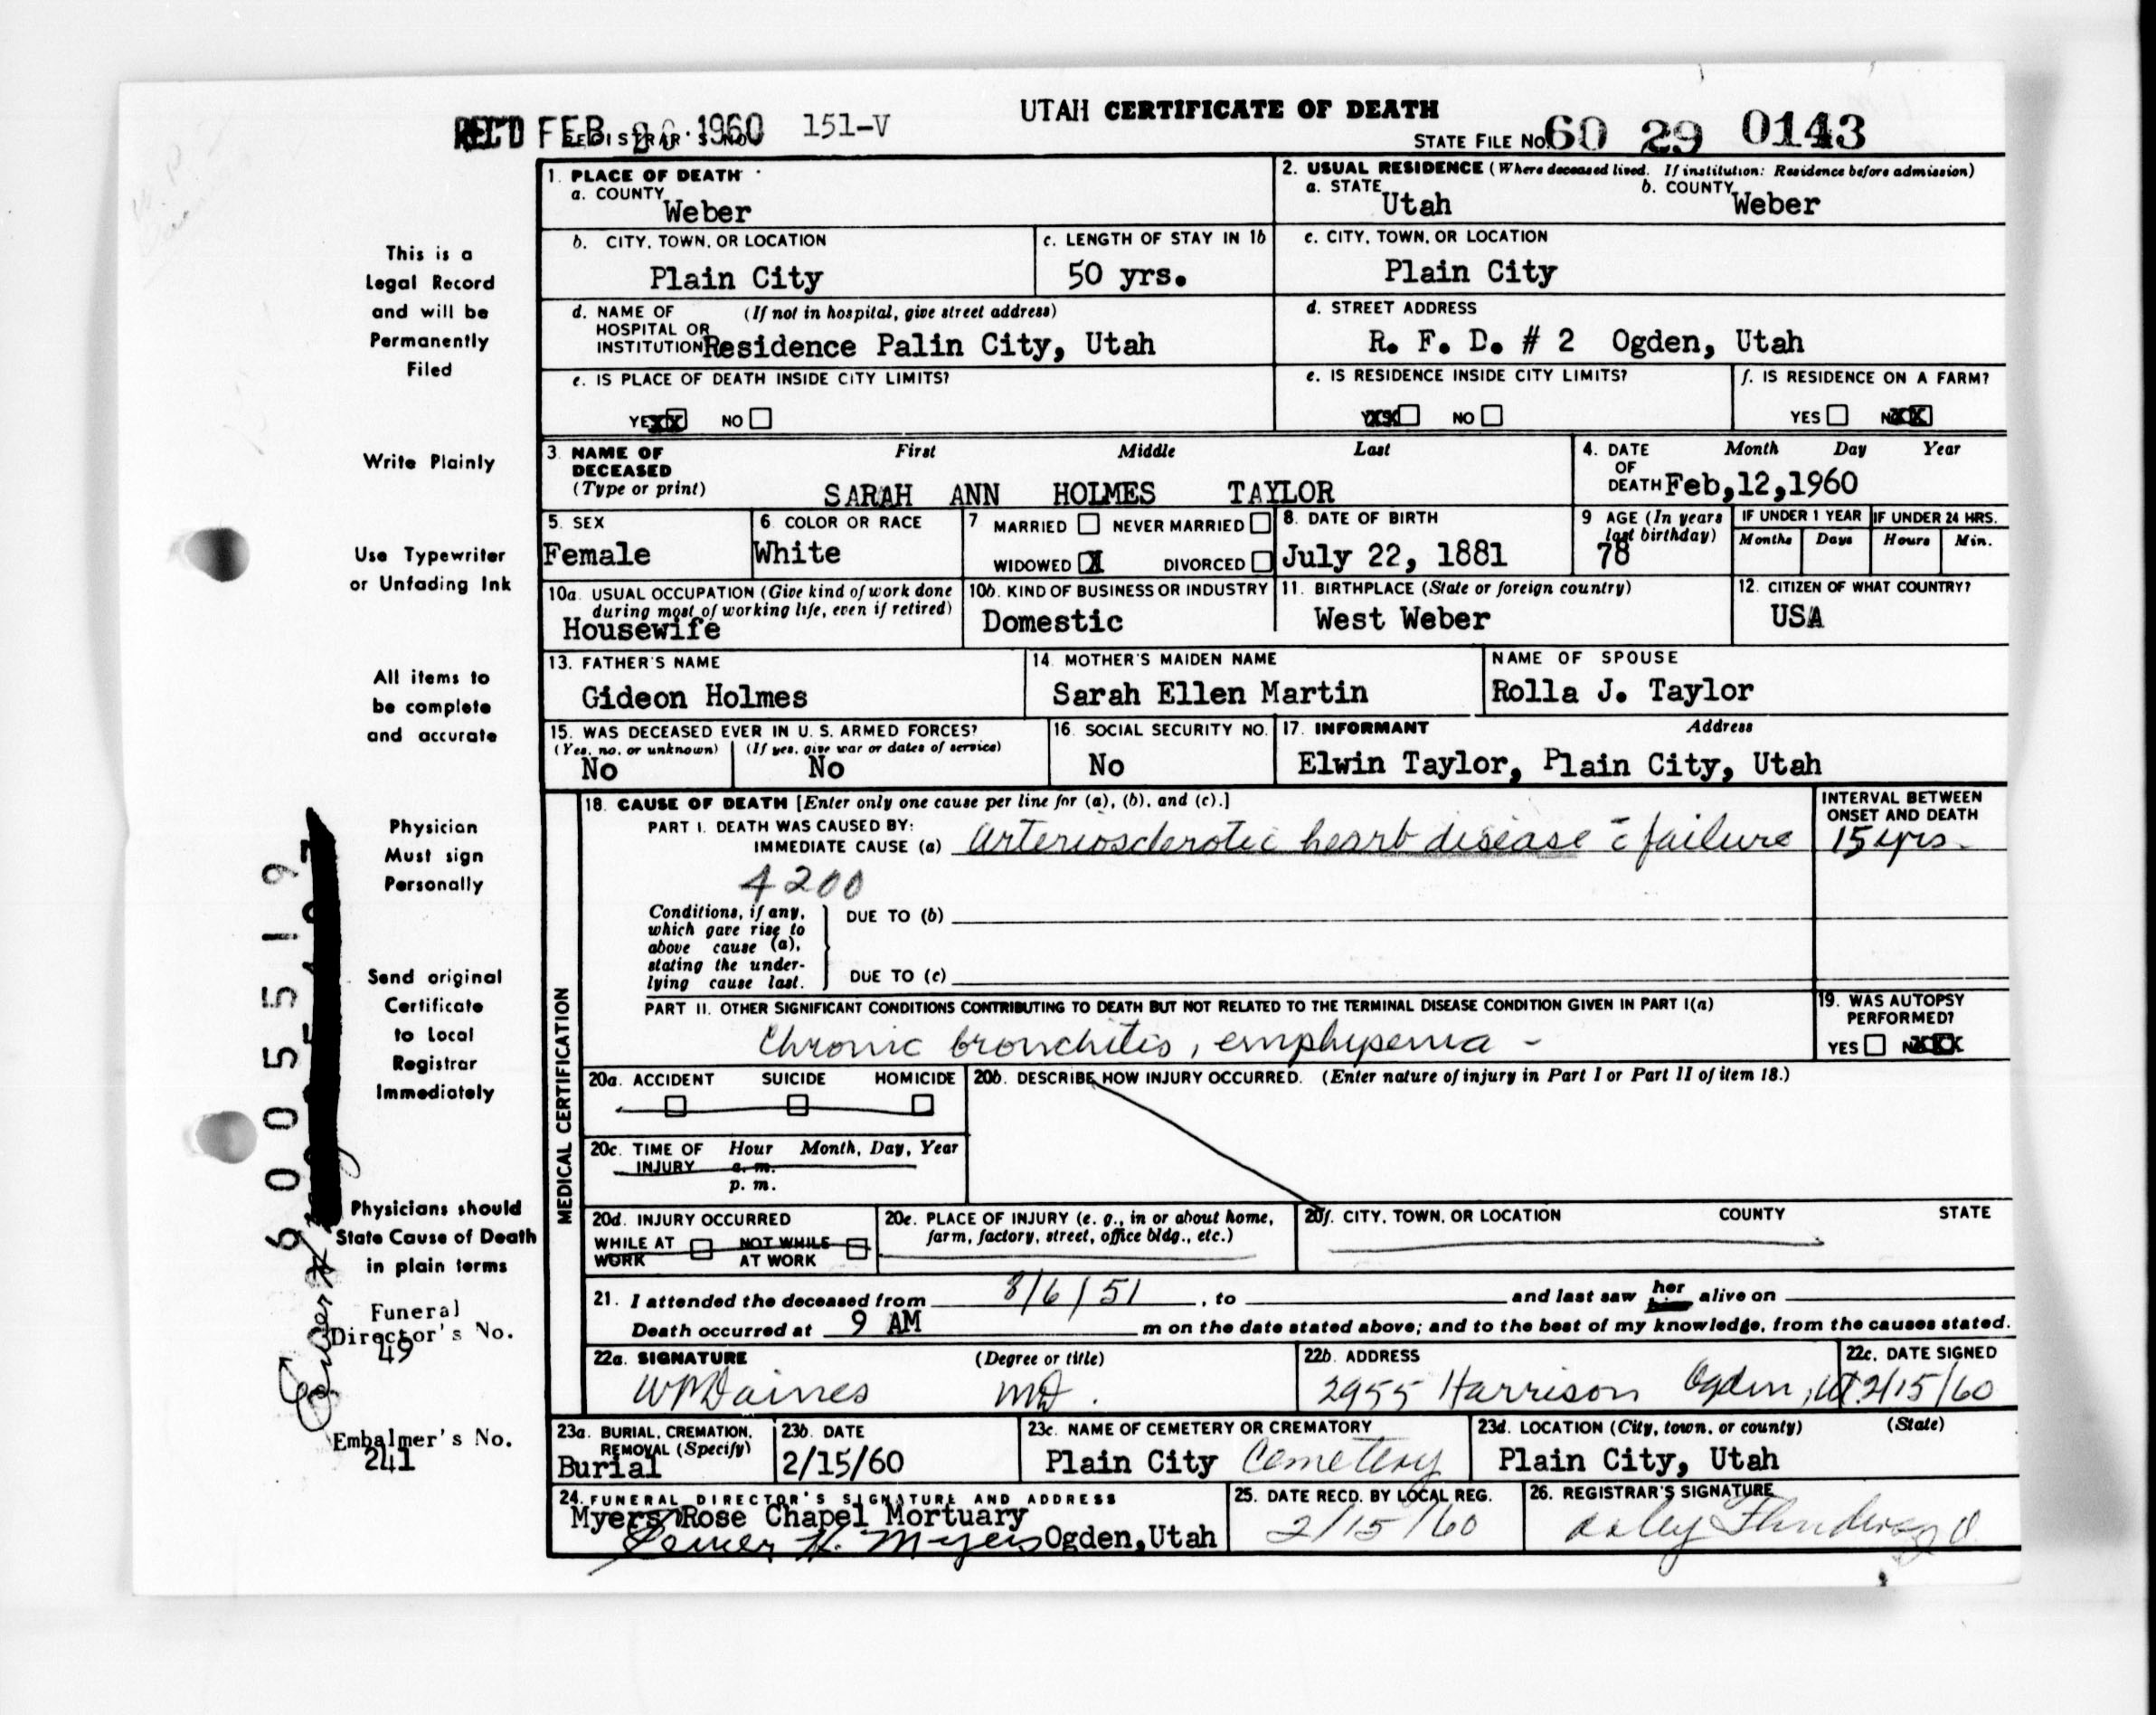 UTAH CERTIFICATE OF DEATH
REC'D FEB 1960 151-V
STATE FILE No. 60 29 0143
This is a
Legal Record
and will be
Permanently
Filed
Write Plainly
Use Typewriter
or Unfading Ink
All items to
be complete
and accurate
Physician
Must sign
Personally
Send original
Certificate
to Local
Registrar
Immediately
Physicians should
State Cause of Death
in plain terms
Funeral
Director's No.
49
Embalmer's No.
241
6005519
1. PLACE OF DEATH
a. COUNTY
Weber
2. USUAL RESIDENCE (Where deceased lived. If institution: Residence before admission)
a. STATE b. COUNTY
Utah Weber
b. CITY, TOWN, OR LOCATION
Plain City
c. LENGTH OF STAY IN 1b
50 yrs.
c. CITY, TOWN, OR LOCATION
Plain City
d. NAME OF (If not in hospital, give street address)
HOSPITAL OR
INSTITUTION Residence Palin City, Utah
d. STREET ADDRESS
R. F. D. # 2 Ogden, Utah
e. IS PLACE OF DEATH INSIDE CITY LIMITS?
YES XX NO
e. IS RESIDENCE INSIDE CITY LIMITS?
YES NO
f. IS RESIDENCE ON A FARM?
YES NO XX
3. NAME OF
DECEASED
(Type or print)
First Middle Last
SARAH ANN HOLMES TAYLOR
4. DATE Month Day Year
OF
DEATH Feb,12,1960
5. SEX
Female
6. COLOR OR RACE
White
7 MARRIED NEVER MARRIED
WIDOWED X DIVORCED
8. DATE OF BIRTH
July 22, 1881
9 AGE (In years
last birthday)
78
IF UNDER 1 YEAR
Months Days
IF UNDER 24 HRS.
Hours Min.
10a. USUAL OCCUPATION (Give kind of work done
during most of working life, even if retired)
Housewife
10b. KIND OF BUSINESS OR INDUSTRY
Domestic
11. BIRTHPLACE (State or foreign country)
West Weber
12. CITIZEN OF WHAT COUNTRY?
USA
13. FATHER'S NAME
Gideon Holmes
14. MOTHER'S MAIDEN NAME
Sarah Ellen Martin
NAME OF SPOUSE
Rolla J. Taylor
15. WAS DECEASED EVER IN U. S. ARMED FORCES?
(Yes, no, or unknown) (If yes, give war or dates of service)
No No
16. SOCIAL SECURITY NO.
No
17. INFORMANT Address
Elwin Taylor, Plain City, Utah
MEDICAL CERTIFICATION
18. CAUSE OF DEATH [Enter only one cause per line for (a), (b), and (c).]
PART I. DEATH WAS CAUSED BY:
IMMEDIATE CAUSE (a) Arteriosclerotic heart disease c̄ failure
INTERVAL BETWEEN
ONSET AND DEATH
15 yrs.
4200
Conditions, if any,
which gave rise to
above cause (a),
stating the under-
lying cause last.
DUE TO (b)
DUE TO (c)
PART II. OTHER SIGNIFICANT CONDITIONS CONTRIBUTING TO DEATH BUT NOT RELATED TO THE TERMINAL DISEASE CONDITION GIVEN IN PART I(a)
Chronic bronchitis, emphysema -
19. WAS AUTOPSY
PERFORMED?
YES NO
20a. ACCIDENT SUICIDE HOMICIDE
20b. DESCRIBE HOW INJURY OCCURRED. (Enter nature of injury in Part I or Part II of item 18.)
20c. TIME OF Hour Month, Day, Year
INJURY a. m.
p. m.
20d. INJURY OCCURRED
WHILE AT NOT WHILE
WORK AT WORK
20e. PLACE OF INJURY (e. g., in or about home,
farm, factory, street, office bldg., etc.)
20f. CITY, TOWN, OR LOCATION COUNTY STATE
21. I attended the deceased from 8/6/51, to and last saw her him alive on
Death occurred at 9 AM m on the date stated above; and to the best of my knowledge, from the causes stated.
22a. SIGNATURE (Degree or title)
WP Daines MD.
22b. ADDRESS
2955 Harrison Ogden, Ut.
22c. DATE SIGNED
2/15/60
23a. BURIAL, CREMATION,
REMOVAL (Specify)
Burial
23b. DATE
2/15/60
23c. NAME OF CEMETERY OR CREMATORY
Plain City Cemetery
23d. LOCATION (City, town, or county) (State)
Plain City, Utah
24. FUNERAL DIRECTOR'S SIGNATURE AND ADDRESS
Myers Rose Chapel Mortuary
Myers Ogden,Utah
25. DATE RECD. BY LOCAL REG.
2/15/60
26. REGISTRAR'S SIGNATURE